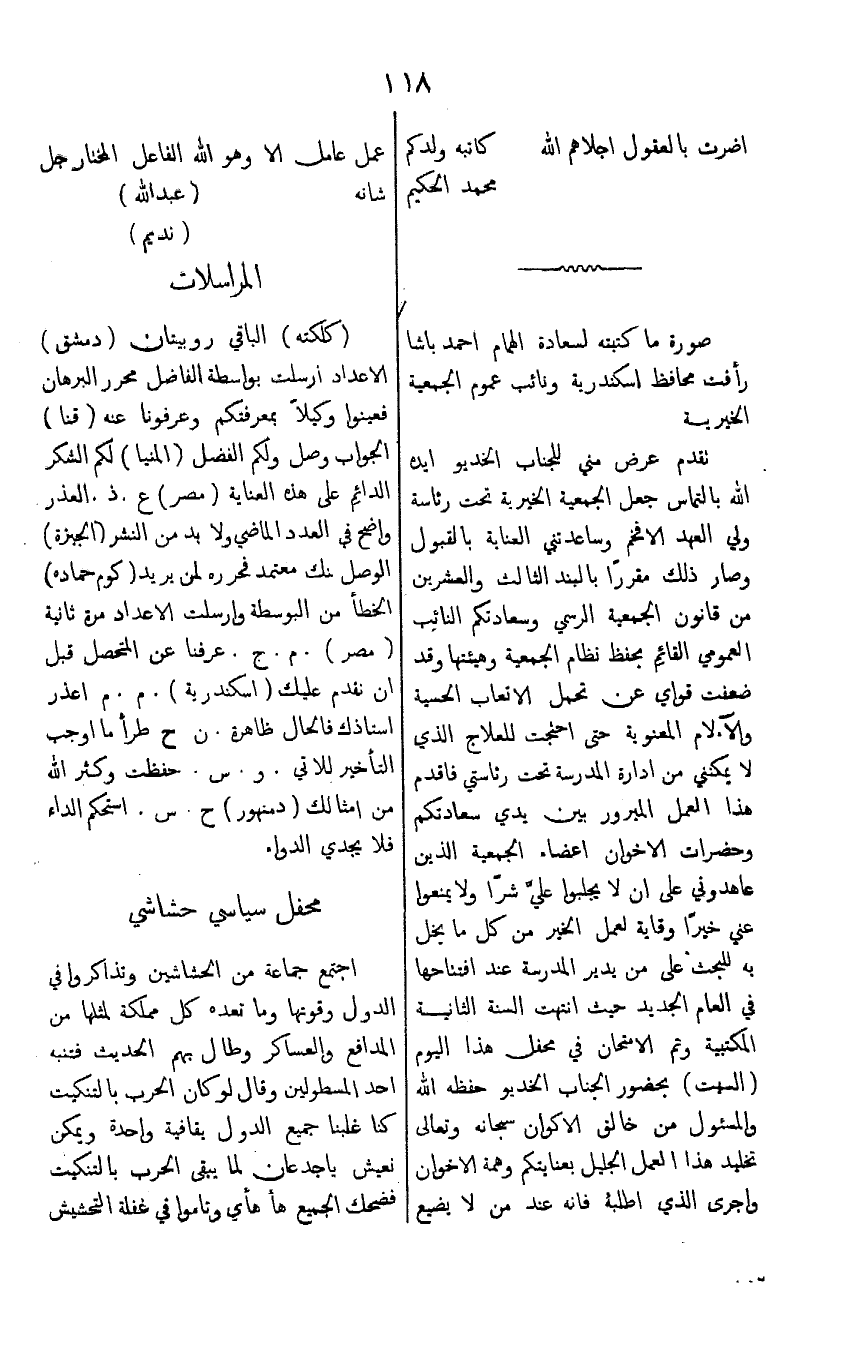 ١١٨
اضرت بالعقول اجلاهم الله كاتبه ولدكم
محمد الحكيم
صورة ما كتبته لسعادة الهمام احمد باشا
رأفت محافظ اسكندرية ونائب عموم الجمعية
الخيرية
نقدم عرض مني للجناب الخديو ايده
الله بالتماس جعل الجمعية الخيرية تحت رئاسة
ولي العهد الافخم وساعدتني العناية بالقبول
وصار ذلك مقررًا بالبند الثالث والعشرين
من قانون الجمعية الرسمي وسعادتكم النائب
العمومي القائم بحفظ نظام الجمعية وهيئتها وقد
ضعفت قواي عن تحمل الاتعاب الحسية
والآلام المعنوية حتى احتجت للعلاج الذي
لا يمكنني من ادارة المدرسة تحت رئاستي فاقدم
هذا العمل المبرور بين يدي سعادتكم
وحضرات الاخوان اعضاء الجمعية الذين
عاهدوني على ان لا يجلبوا عليّ شرًا ولا يمنعوا
عني خيرًا وقاية لعمل الخير من كل ما يخل
به للبحث على من يدير المدرسة عند افتتاحها
في العام الجديد حيث انتهت السنة الثانية
المكتبية وتم الامتحان في محفل هذا اليوم
(السبت) بحضور الجناب الخديو حفظه الله
والمسئول من خالق الاكوان سبحانه وتعالى
تخليد هذا العمل الجليل بعنايتكم وهمة الاخوان
واجرى الذي اطلبه فانه عند من لا يضيع
عمل عامل الا وهو الله الفاعل المختار جل
شانه (عبدالله)
(نديم)
المراسلات
(كلكته) الباقي روبيتان (دمشق)
الاعداد ارسلت بواسطة الفاضل محرر البرهان
فعينوا وكيلاً بمعرفتكم وعرفونا عنه (قنا)
الجواب وصل ولكم الفضل (المنيا) لكم الشكر
الدائم على هذه العناية (مصر) ع . ذ . العذر
واضح في العدد الماضي ولا بد من النشر (الجيزة)
الوصل بنك معتمد فحرره لمن يريد (كوم حماده)
الخطأ من البوسطة وارسلت الاعداد مرة ثانية
(مصر) . م . ج . عرفنا عن المتحصل قبل
ان نقدم عليك (اسكندرية) . م . م اعذر
استاذك فالحال ظاهرة . ن ح طرأ ما اوجب
التأخير للاتي . و . س . حفظت وكثر الله
من امثالك (دمنهور) ح . س . استحكم الداء
فلا يجدي الدواء
محفل سياسي حشاشي
اجتمع جماعة من الحشاشين وتذاكروا في
الدول وقوتها وما تعده كل مملكة لمثلها من
المدافع والعساكر وطال بهم الحديث فتنبه
احد المسطولين وقال لوكان الحرب بالتنكيت
كنا غلبنا جميع الدول بقافية واحدة ويمكن
نعيش ياجدعان لما يبقى الحرب بالتنكيت
فضحك الجميع هأ هأي وناموا في غفلة التحشيش